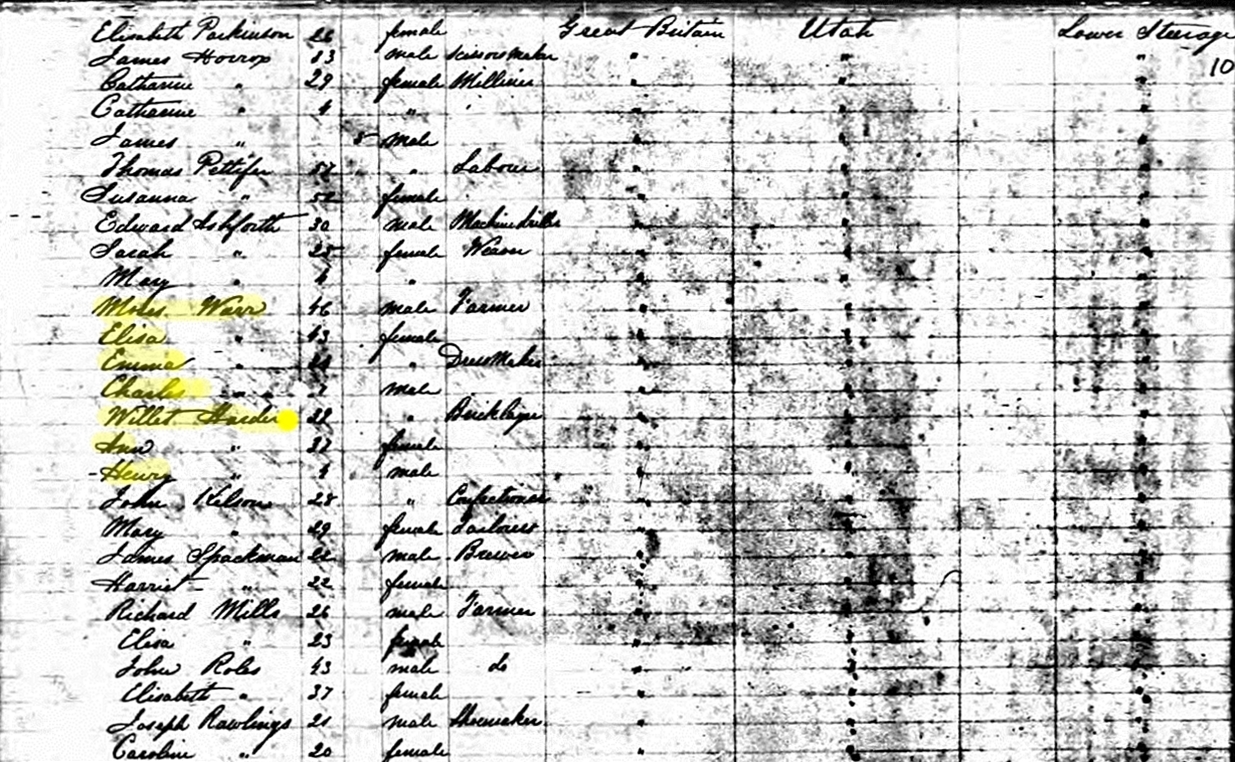 Elisabeth Parkinson 26 female Great Britain Utah Lower Steerage
James Horrox 33 male Scissors maker " " "
10
Catharine " 29 female Milliner " " "
Catharine " 4 " " " "
James " male " " "
Thomas Pettifer 57 " Labour " " "
Susanna " female " " "
Edward Ashforth 30 male Machine driller " " "
Sarah " 25 female " " "
Mary " 4 " " " "
Moses Warr 46 male Farmer " " "
Elisa " 43 female " " "
Emma " " Dress Maker " " "
Charles " 7 male " " "
Willet Harder " Bricklayer " " "
Ann " 27 female " " "
Henry " 4 male " " "
John Kilson 28 " Confectioner " " "
Mary " 29 female " " "
James Spackman 22 male Brewer " " "
Harriet " 22 female " " "
Richard Mills 26 male Farmer " " "
Elisa " 23 female " " "
John Roles 43 male do " " "
Elisabeth " 37 female " " "
Joseph Rawlings 21 male Shoemaker " " "
Caroline " 20 female " " "